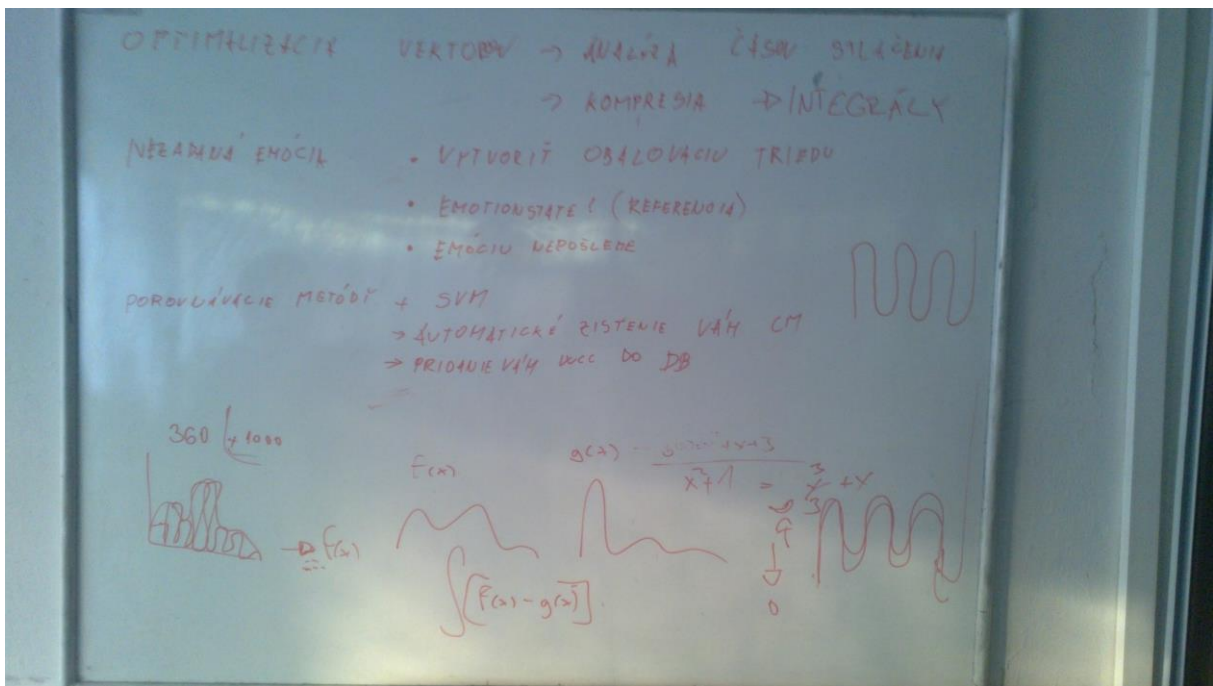 OPTIMALIZÁCIA VEKTOROV → ANALÝZA ČASOV STLAČENIA
→ KOMPRESIA → INTEGRÁLY
NEZADANÁ EMÓCIA • VYTVORIŤ OBALOVACIU TRIEDU
• EMOTIONSTATE! (REFERENCIA)
• EMÓCIU NEPOŠLEDE
POROVNÁVACIE METÓDY + SVM
→ AUTOMATICKÉ ZISTENIE VÁH CM
→ PRIDANIE VÁH DO DB
360 × 1000
→ f(x)
f(x)
∫[f(x) - g(x)]
g(x)
x²+1 = +x
0